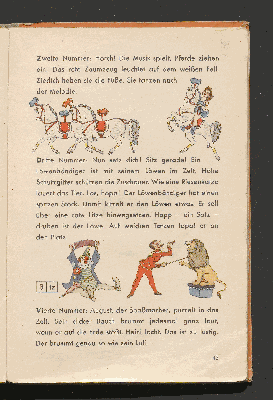 Zweite Nummer: Horch! Die Musik spielt. Pferde ziehen
ein. Das rote Zaumzeug leuchtet auf dem weißen Fell.
Zierlich heben sie die Füße. Sie tanzen nach
der Melodie.
Dritte Nummer: Nun setz dich! Sitz gerade! Ein
Löwenbändiger ist mit seinem Löwen im Zelt. Hohe
Schutzgitter schützen die Zuschauer. Wie eine Riesenkatze
das Tier. Los, hopp! Der Löwenbändiger hat einen
spitzen Stock. Damit kitzelt er den Löwen etwas. Er soll
über eine rote Latze hinwegsetzen. Hopp ein Satz
drüben ist der Löwe. Auf weichen Tatzen tapst er an
den Platz.
tz
Vierte Nummer: August, der Spaßmacher, purzelt in das
Zelt. Sein dicker Bauch brummt jedesmal ganz laut,
wenn er auf die Erde stößt. Heini lacht. Das ist zu lustig.
Der brummt genau so wie sein